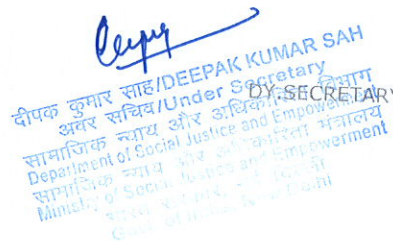 दीपक कुमार साह/DEEPAK KUMAR SAH
अवर सचिव/Under Secretary
DY. SECRETARY
सामाजिक न्याय और अधिकारिता विभाग
Department of Social Justice and Empowerment
सामाजिक न्याय और अधिकारिता मंत्रालय
Ministry of Social Justice and Empowerment
भारत सरकार, नई दिल्ली
Govt. of India, New Delhi